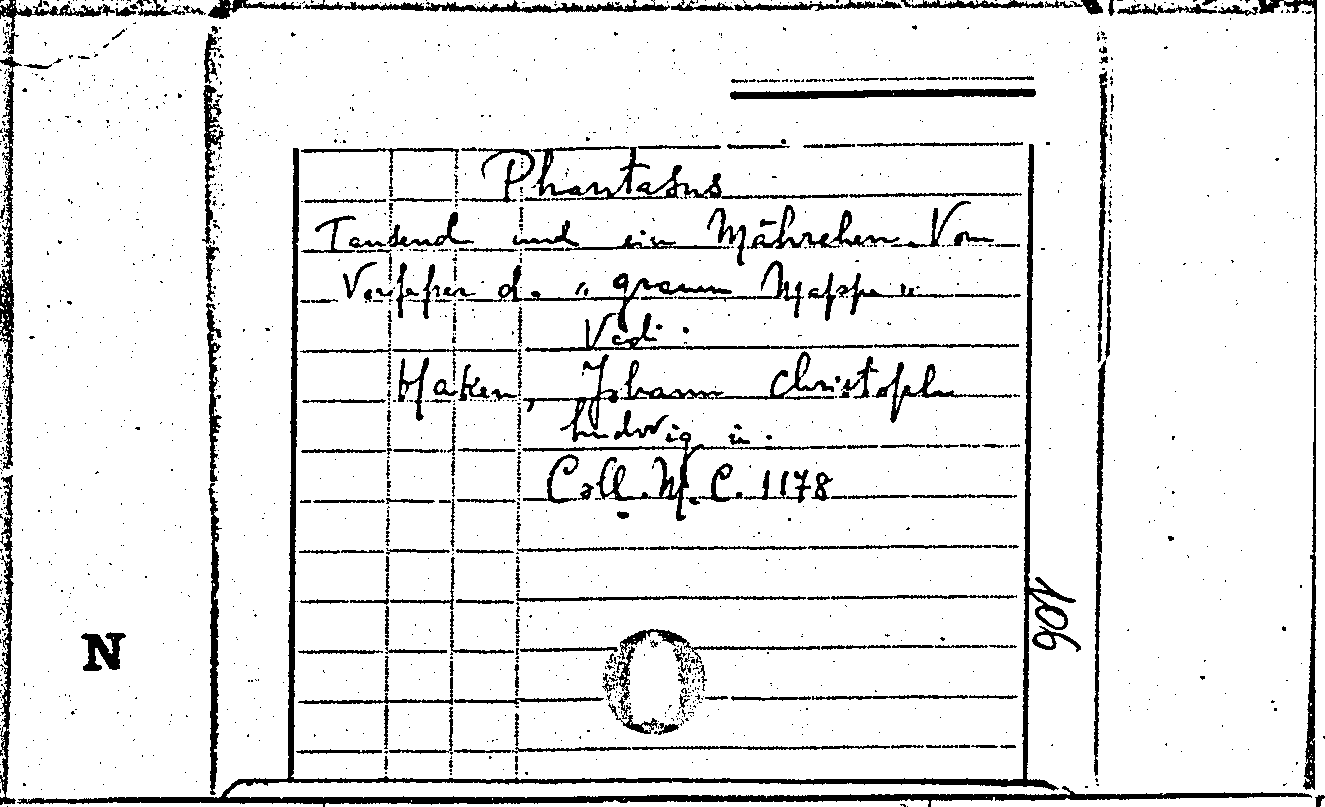 Phantasus
Tausend und ein Mährchen. Vom
Verfasser d. "grauen Mappe"
Vedi:
Haken, Johann Christoph
Ludwig in:
Coll. M. C. 1178
106
N